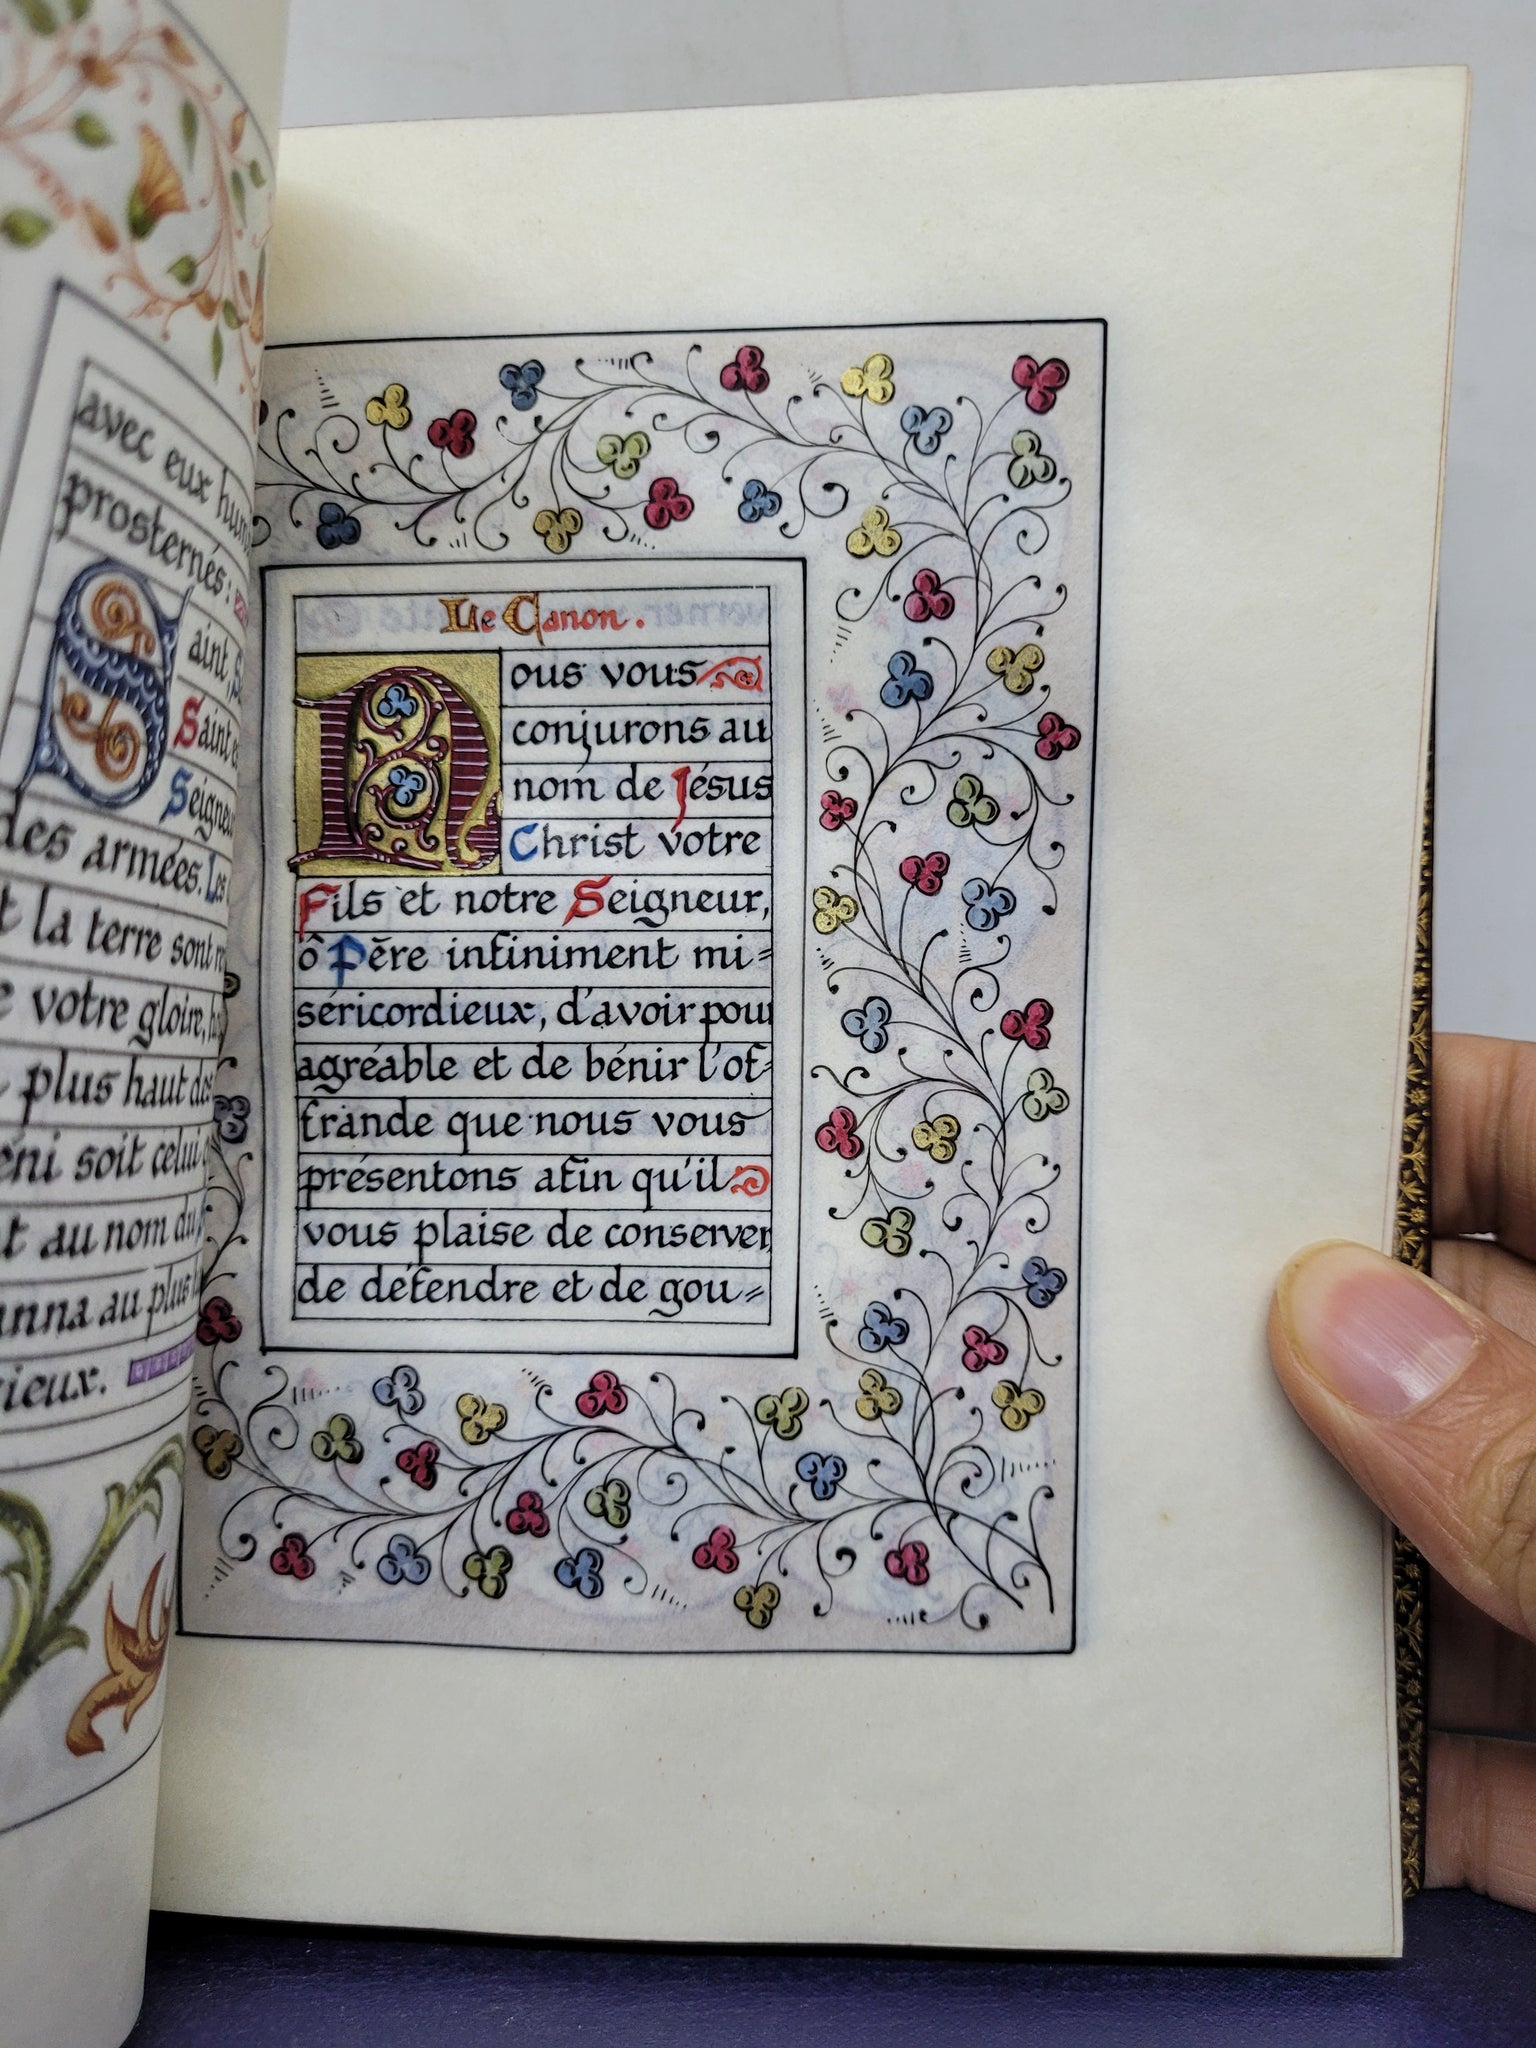 avec eux
prosternés :
Saint,
Saint
Seigneur
des armées. Les
la terre sont
votre gloire,
plus haut des
soit celui
au nom du
au plus
Le Canon.
Nous vous
conjurons au
nom de Jésus
Christ votre
Fils et notre Seigneur,
ô Père infiniment mi=
séricordieux, d'avoir pour
agréable et de bénir l'of=
frande que nous vous
présentons afin qu'il
vous plaise de conserver,
de défendre et de gou=